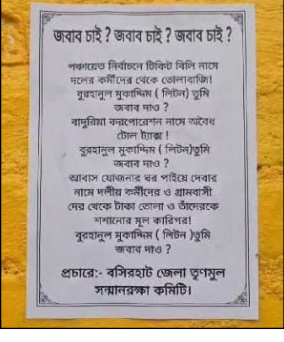 জবাব চাই ? জবাব চাই ? জবাব চাই ?
পঞ্চায়েত নির্বাচনে টিকিট বিলি নামে
দলের কর্মীদের থেকে তোলাবাজি!
বুরহানুল মুকাদ্দিম ( লিটন) তুমি
জবাব দাও ?
বাদুরিয়া করপোরেশন নামে অবৈধ
টোল ট্যাক্স !
বুরহানুল মুকাদ্দিম ( লিটন)তুমি
জবাব দাও ?
আবাস যোজনার ঘর পাইয়ে দেবার
নামে দলীয় কর্মীদের ও গ্রামবাসী
দের থেকে টাকা তোলা ও তাঁদেরকে
শশানোর মূল কারিগর!
বুরহানুল মুকাদ্দিম ( লিটন )তুমি
জবাব দাও ?
প্রচারে:- বসিরহাট জেলা তৃণমুল
সম্মানরক্ষা কমিটি।